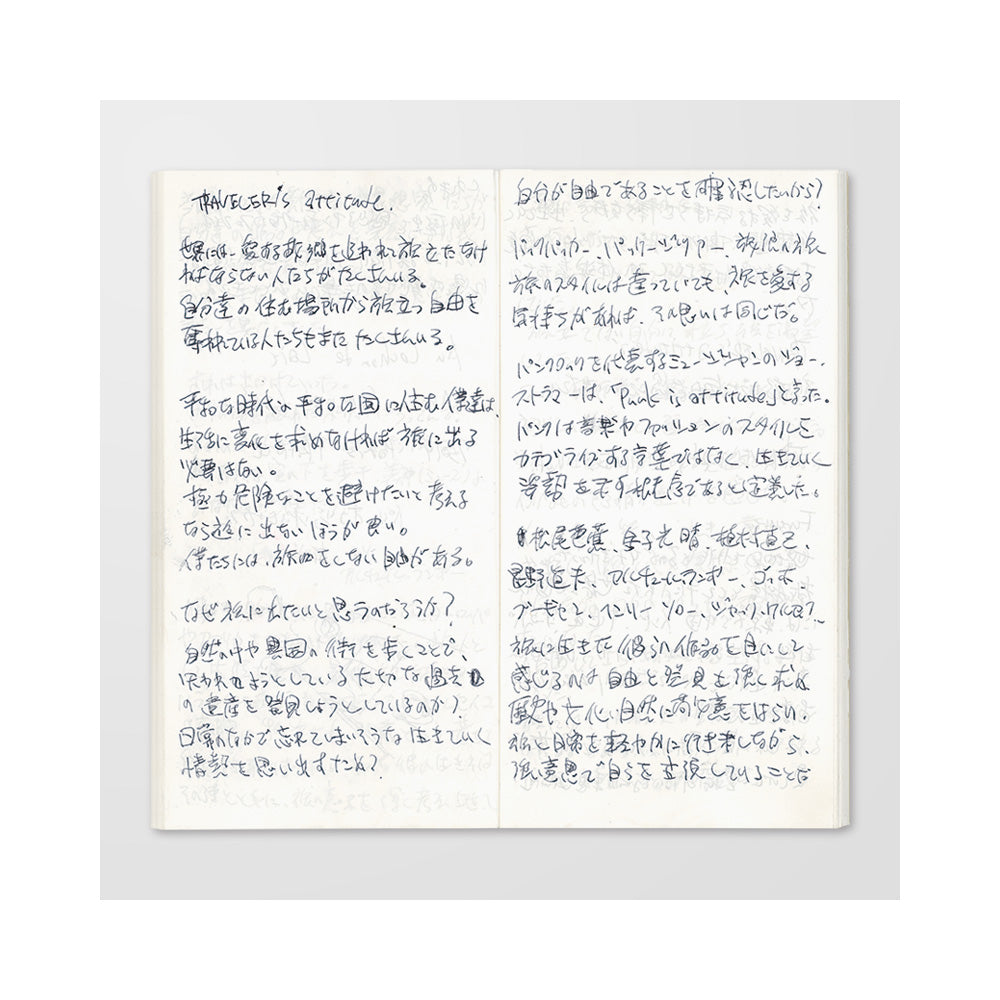 TRAVELER's attitude.
世界には、愛する故郷を追われて旅立たなけ
ればならない人たちがたくさんいる。
自分達の住む場所から旅立つ自由を
奪われている人たちもまたたくさんいる。
平和な時代の平和な国に住む僕達は、
生活に変化を求めなければ旅に出る
必要はない。
極力危険なことを避けたいと考える
なら旅に出ないほうが良い。
僕たちには、旅をしない自由がある。
なぜ旅に出たいと思うのだろうか?
自然の中や異国の街を歩くことで、
失われようとしている大切な過去
の遺産を発見しようとしているのか?
日常のなかで忘れてしまいそうな生きていく
情熱を思い出すため?
自分が自由であることを確認したいから?
バックパッカー、パッケージツアー、放浪の旅
旅のスタイルは違っていても、旅を愛する
気持ちがあれば、その思いは同じだ。
パンクロックを代表するミュージシャンのジョー・
ストラマーは、「Punk is attitude」と言った。
パンクは音楽やファッションのスタイルを
カテゴライズする言葉ではなく、生きていく
姿勢を示す根本であると定義した。
松尾芭蕉、金子光晴、植村直己、
星野道夫、アルチュール・ランボー、ゴッホ、
ゴーギャン、ヘンリー・ソロー、ジャック・ケルアック…
旅に生きた彼らの作品を目にして
感じるのは自由と発見を強く求め
歴史や文化、自然に敬意をはらい、
旅と日常を軽やかに行き来しながら、
強い意思で自らを主張していることだ